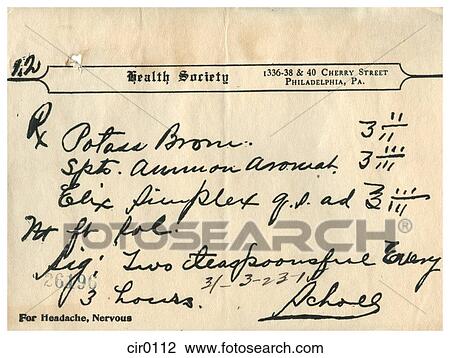 92
Health Society 1336-38 & 40 Cherry Street
Philadelphia, Pa.
Rx Potass Brom. ʒ ii
Spts. Ammon Aromat. ʒ iii
Elix Simplex q.s. ad ʒ iii
M ft Sol.
Sig: Two teaspoonsful Every
26196
3 hours. 31-3-23-1
Scholl
For Headache, Nervous
FOTOSEARCH
cir0112 www.fotosearch.com